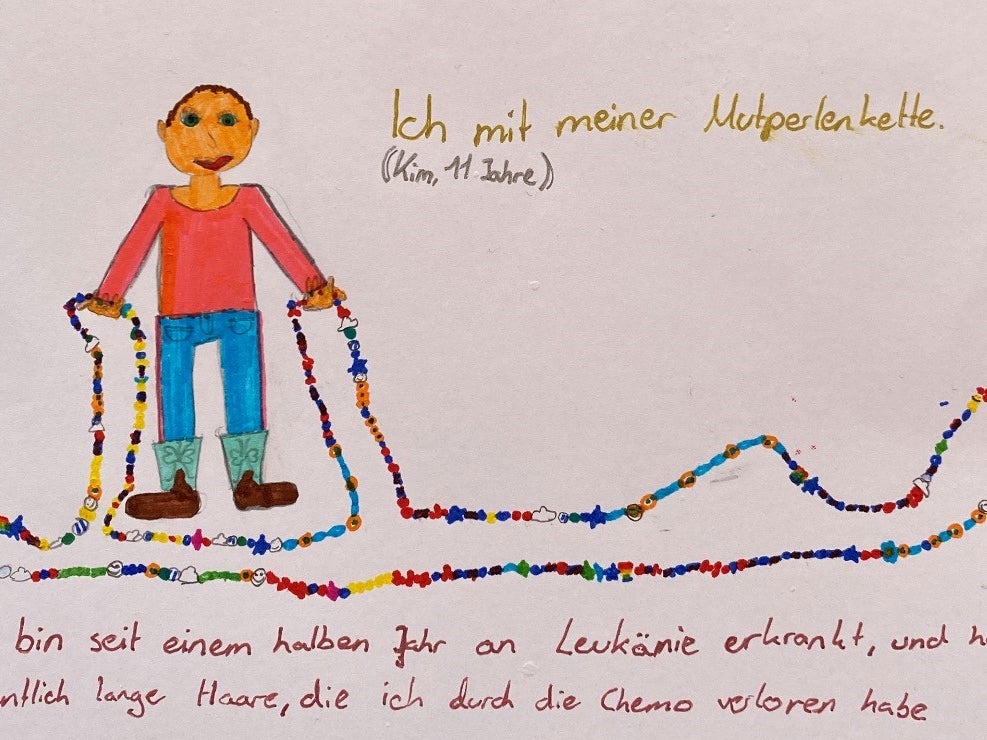 Ich mit meiner Mutperlenkette.
(Kim, 11 Jahre)
bin seit einem halben Jahr an Leukänie erkrankt, und h
ntlich lange Haare, die ich durch die Chemo verloren habe